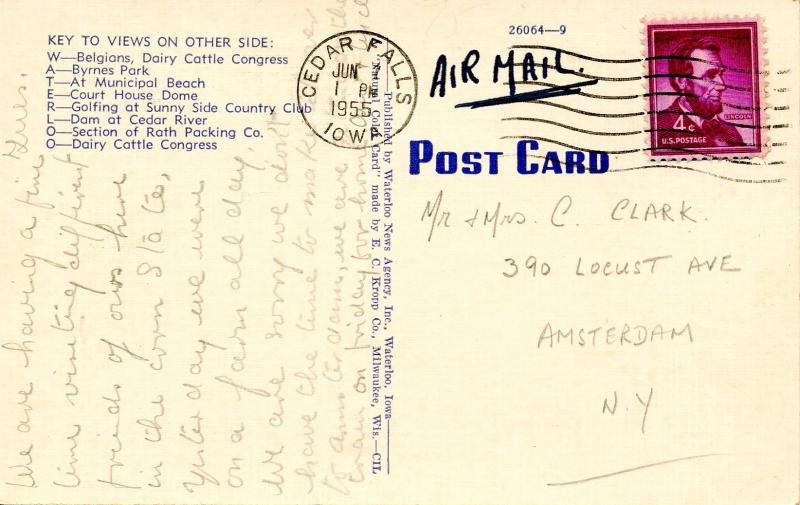 KEY TO VIEWS ON OTHER SIDE:
W—Belgians, Dairy Cattle Congress
A—Byrnes Park
T—At Municipal Beach
E—Court House Dome
R—Golfing at Sunny Side Country Club
L—Dam at Cedar River
O—Section of Rath Packing Co.
O—Dairy Cattle Congress
Tues.
We are having a fine
time visiting different
friends of ours here
in the corn State,
Yesterday we were
on a farm all day
We are sorry we don't
have the time to
to Amsterdam, we are
train on Friday for home
Published by Waterloo News Agency, Inc., Waterloo, Iowa
"Natural Color Card" made by E. C. Kropp Co., Milwaukee, Wis.—CIL
26064—9
CEDAR FALLS
JUN
1 PM
1955
IOWA
AIR MAIL.
LINCOLN
4¢
U.S. POSTAGE
POST CARD
Mr & Mrs. C. CLARK.
390 LOCUST AVE
AMSTERDAM
N.Y